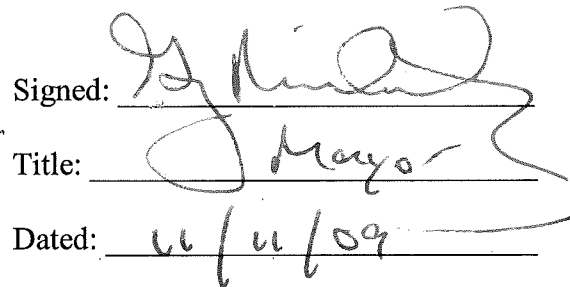 Signed:
Title: Mayor
Dated: 11/11/09